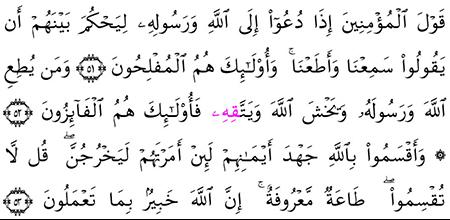 قَوْلَ ٱلْمُؤْمِنِينَ إِذَا دُعُوٓا۟ إِلَى ٱللَّهِ وَرَسُولِهِۦ لِيَحْكُمَ بَيْنَهُمْ أَن
يَقُولُوا۟ سَمِعْنَا وَأَطَعْنَا ۚ وَأُو۟لَٰٓئِكَ هُمُ ٱلْمُفْلِحُونَ ﴿٥١﴾ وَمَن يُطِعِ
ٱللَّهَ وَرَسُولَهُۥ وَيَخْشَ ٱللَّهَ وَيَتَّقِهِۦ فَأُو۟لَٰٓئِكَ هُمُ ٱلْفَآئِزُونَ ﴿٥٢﴾
۞ وَأَقْسَمُوا۟ بِٱللَّهِ جَهْدَ أَيْمَٰنِهِمْ لَئِنْ أَمَرْتَهُمْ لَيَخْرُجُنَّ ۖ قُل لَّا
تُقْسِمُوا۟ ۖ طَاعَةٌ مَّعْرُوفَةٌ ۚ إِنَّ ٱللَّهَ خَبِيرٌۢ بِمَا تَعْمَلُونَ ﴿٥٣﴾